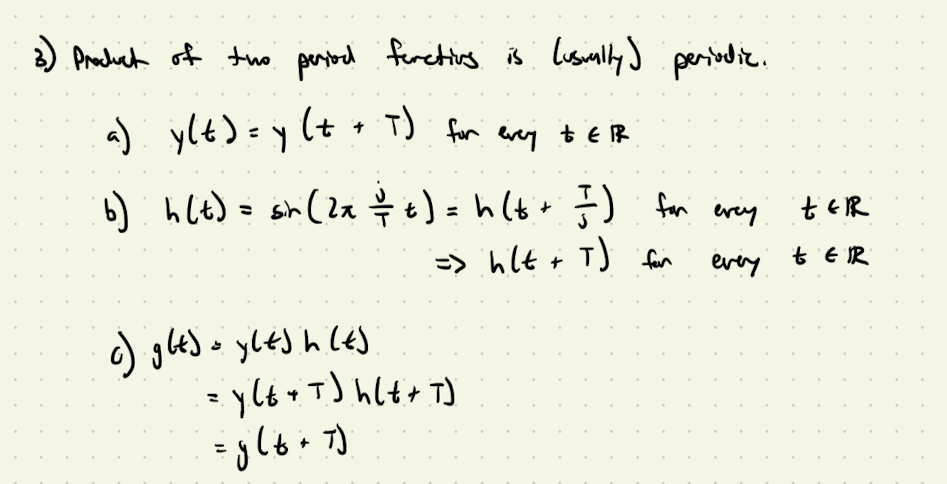 3) Product of two period functions is (usually) periodic.
a) y(t) = y(t + T) for every t ∈ ℝ
b) h(t) = sin(2π j/T t) = h(t + T/j) for every t ∈ ℝ
=> h(t + T) for every t ∈ ℝ
c) g(t) = y(t) h(t)
= y(t + T) h(t + T)
= g(t + T)